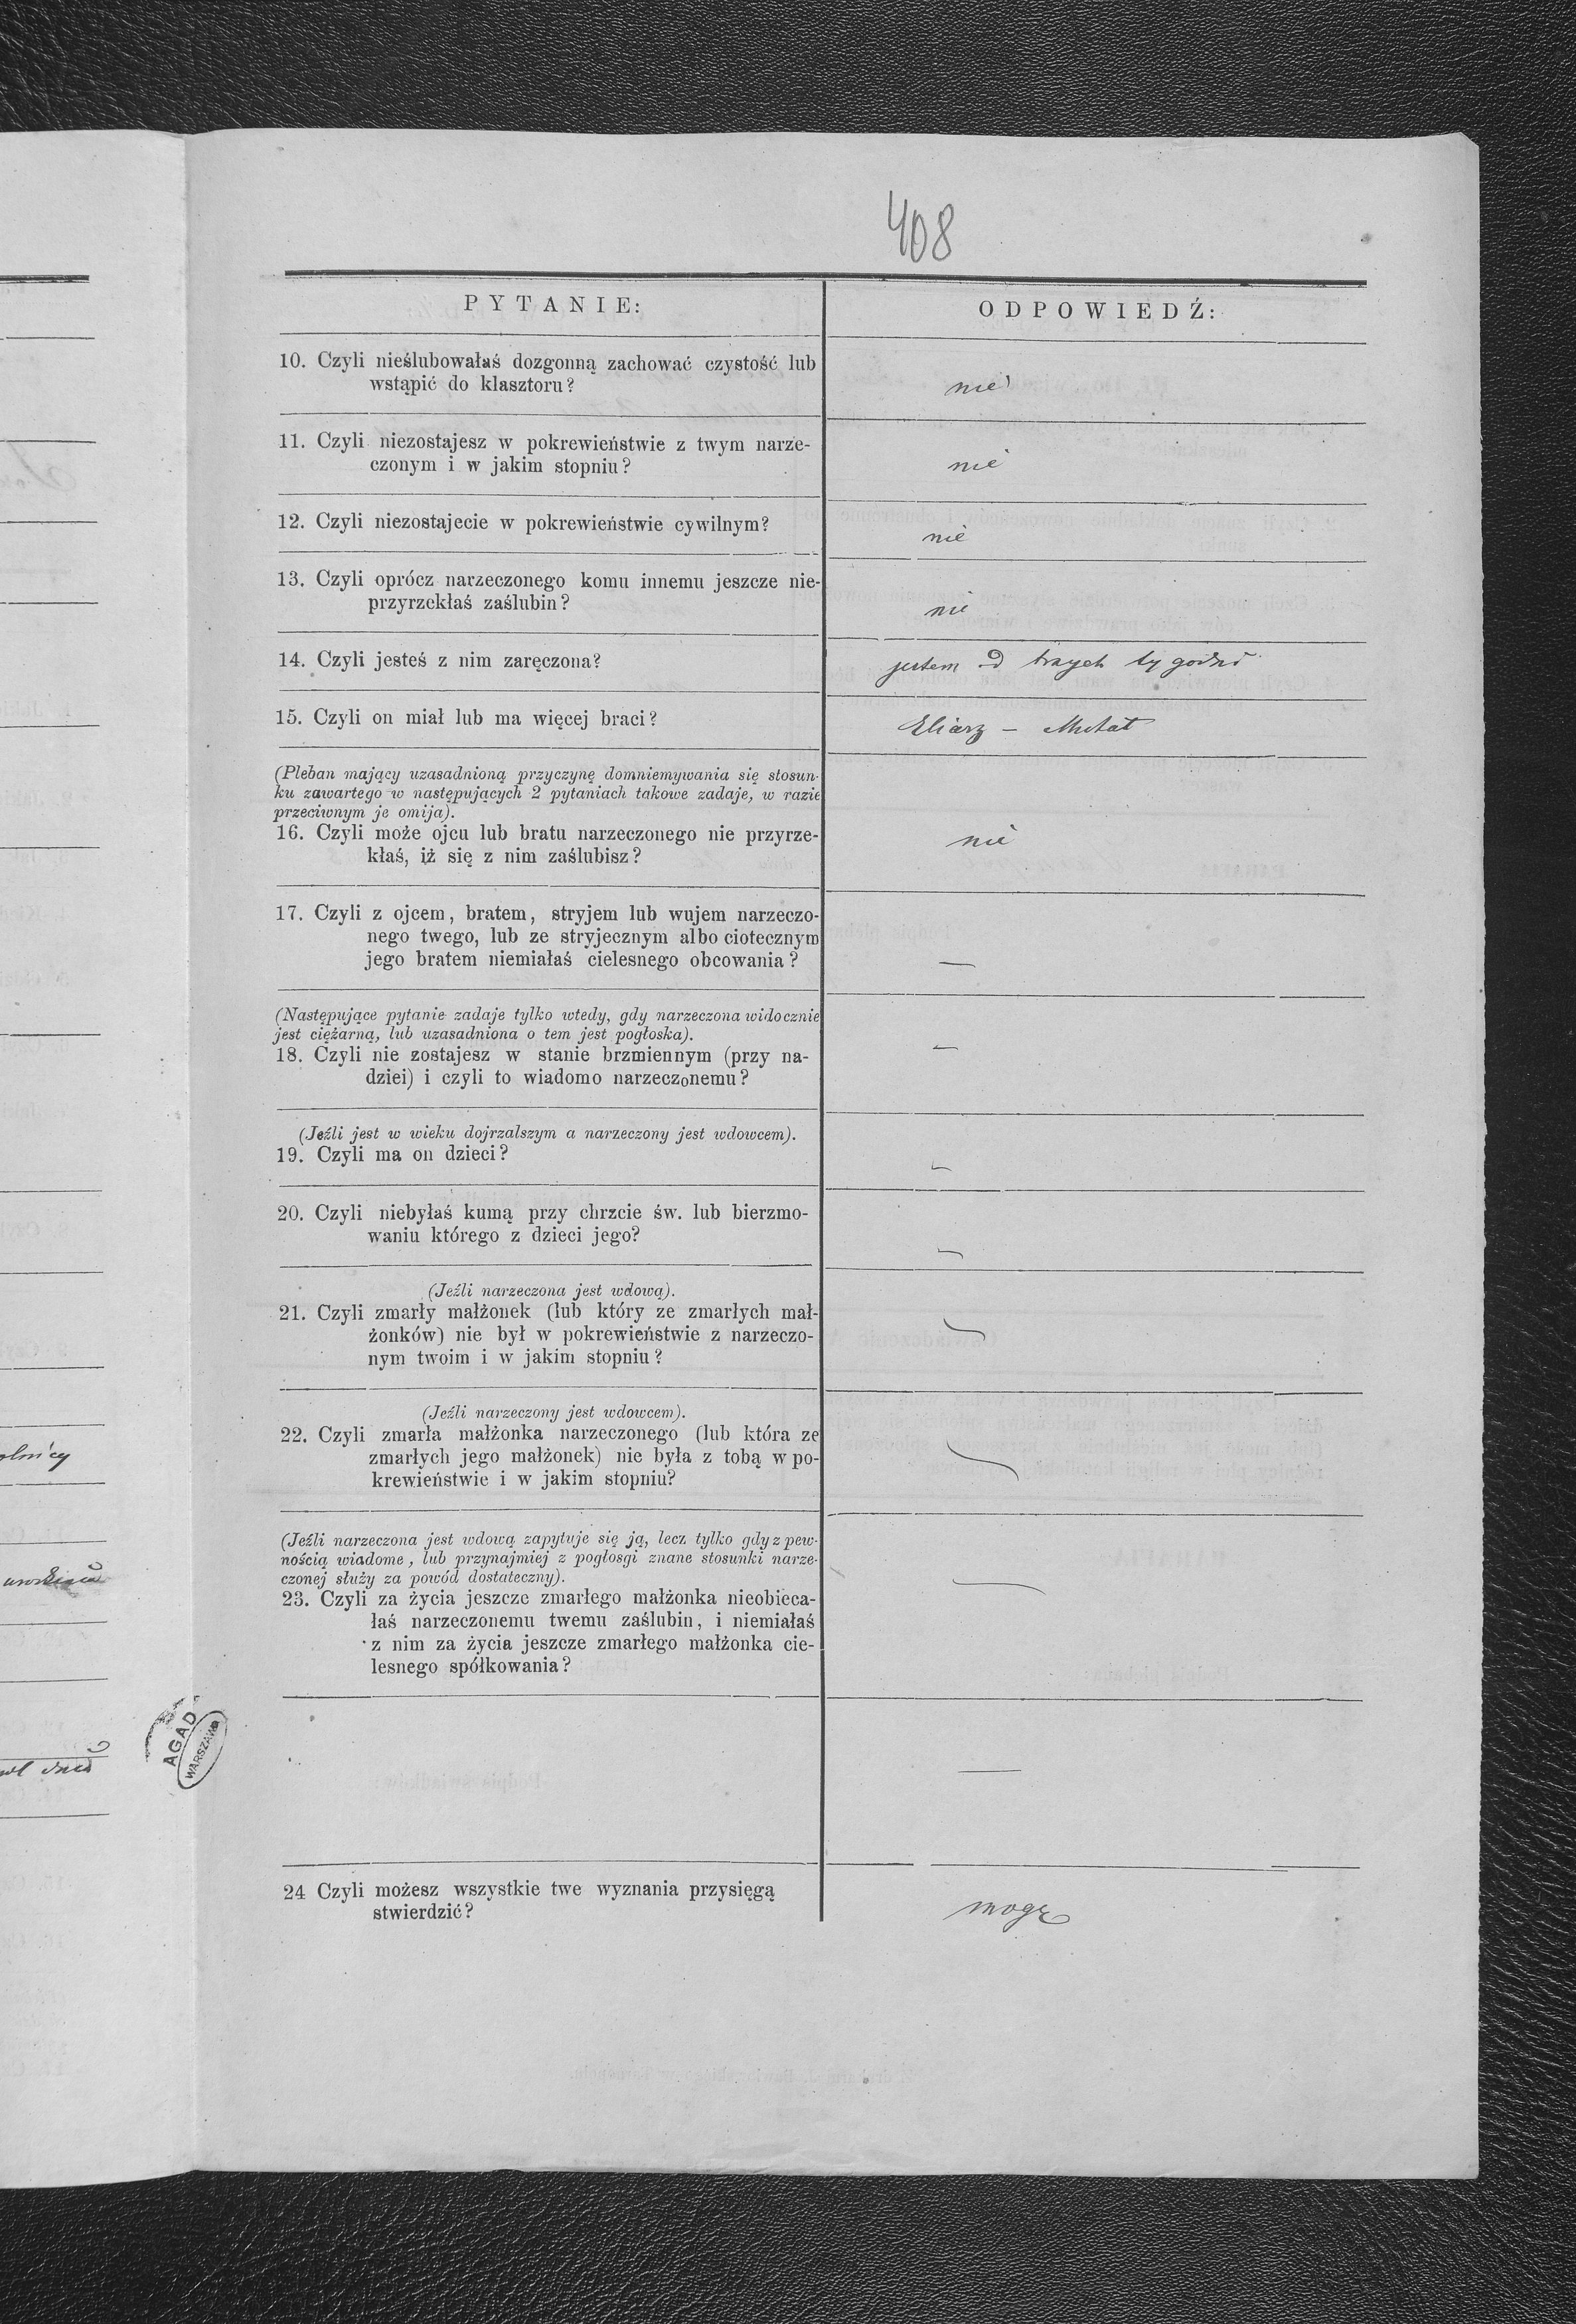 408
PYTANIE:
ODPOWIEDŹ:
10. Czyli nieślubowałaś dozgonną zachować czystość lub
wstąpić do klasztoru?
nie
11. Czyli niezostajesz w pokrewieństwie z twym narze-
czonym i w jakim stopniu?
nie
12. Czyli niezostajecie w pokrewieństwie cywilnym?
nie
13. Czyli oprócz narzeczonego komu innemu jeszcze nie-
przyrzekłaś zaślubin?
nie
14. Czyli jesteś z nim zaręczona?
jestem od trzech tygodni
15. Czyli on miał lub ma więcej braci?
Eliarz –
(Pleban mający uzasadnioną przyczynę domniemywania się stosun-
ku zawartego w następujących 2 pytaniach takowe zadaje, w razie
przeciwnym je omija).
16. Czyli może ojcu lub bratu narzeczonego nie przyrze-
kłaś, iż się z nim zaślubisz?
nie
17. Czyli z ojcem, bratem, stryjem lub wujem narzeczo-
nego twego, lub ze stryjecznym albo ciotecznym
jego bratem niemiałaś cielesnego obcowania?
—
(Następujące pytanie zadaje tylko wtedy, gdy narzeczona widocznie
jest ciężarną, lub uzasadniona o tem jest pogłoska).
18. Czyli nie zostajesz w stanie brzmiennym (przy na-
dziei) i czyli to wiadomo narzeczonemu?
—
(Jeźli jest w wieku dojrzalszym a narzeczony jest wdowcem).
19. Czyli ma on dzieci?
—
20. Czyli niebyłaś kumą przy chrzcie św. lub bierzmo-
waniu którego z dzieci jego?
—
(Jeźli narzeczona jest wdową).
21. Czyli zmarły małżonek (lub który ze zmarłych mał-
żonków) nie był w pokrewieństwie z narzeczo-
nym twoim i w jakim stopniu?
—
(Jeźli narzeczony jest wdowcem).
22. Czyli zmarła małżonka narzeczonego (lub która ze
zmarłych jego małżonek) nie była z tobą w po-
krewieństwie i w jakim stopniu?
—
(Jeźli narzeczona jest wdową zapytuje się ją, lecz tylko gdy z pew-
nością wiadome, lub przynajmiej z pogłosgi znane stosunki narze-
czonej służy za powód dostateczny).
23. Czyli za życia jeszcze zmarłego małżonka nieobieca-
łaś narzeczonemu twemu zaślubin, i niemiałaś
z nim za życia jeszcze zmarłego małżonka cie-
lesnego spółkowania?
—
—
24 Czyli możesz wszystkie twe wyznania przysięgą
stwierdzić?
mogę
AGAD
WARSZAWA